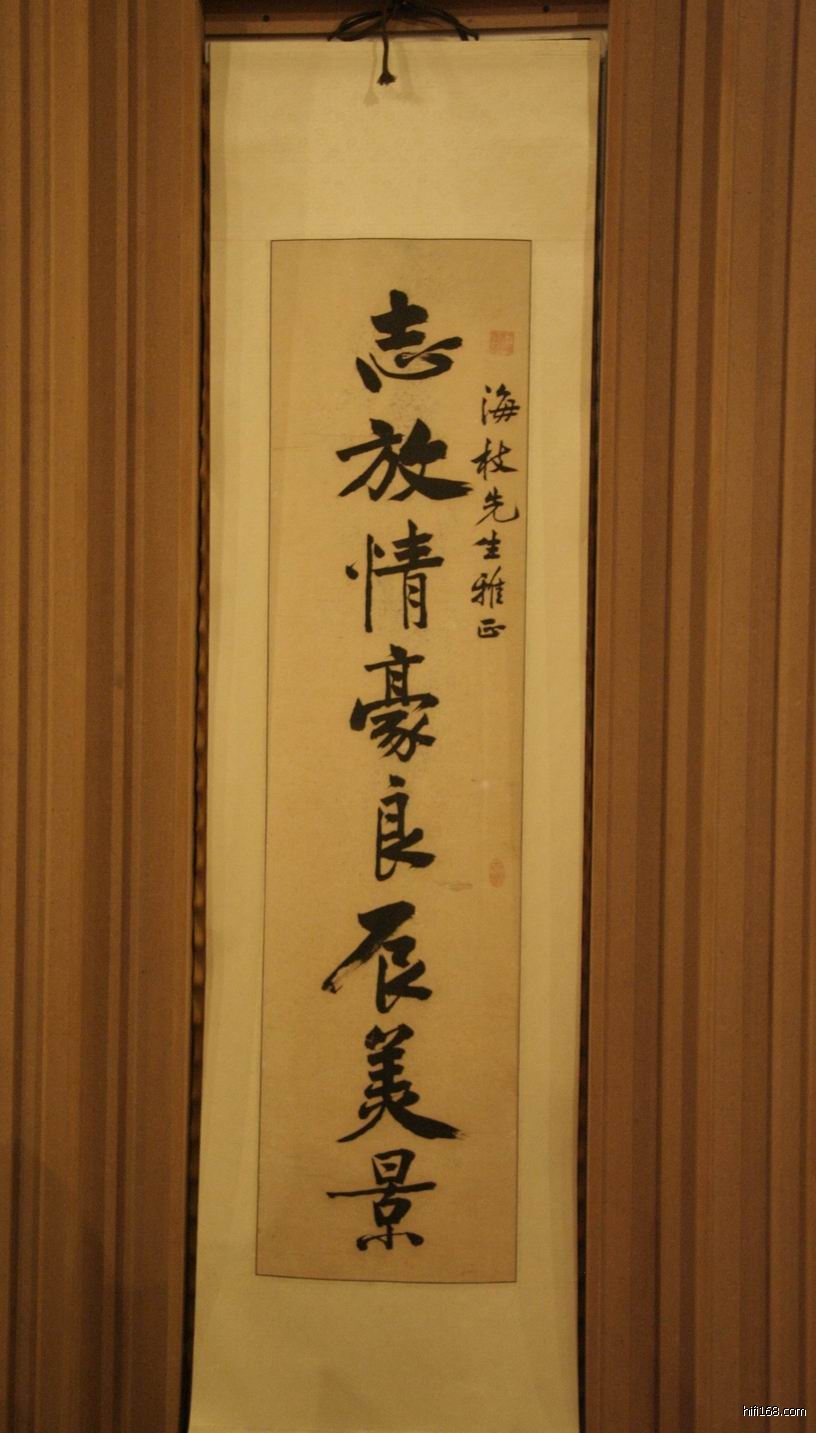 海枝先生雅正
志放情豪良辰美景
hifi168.com